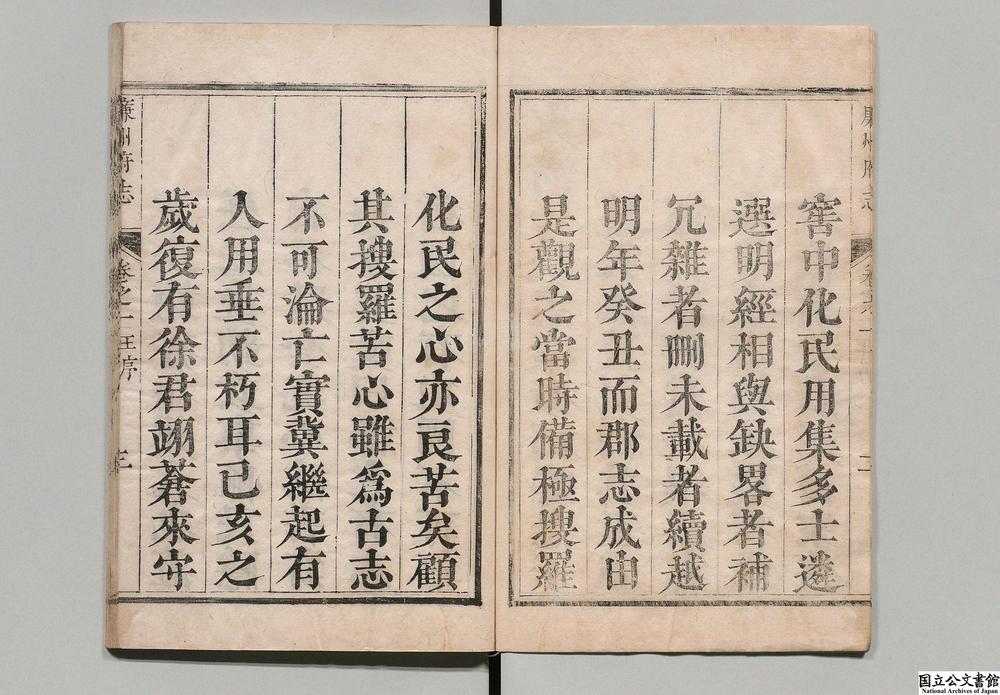 窖中化民用集多士遴
選明經相與缺畧者補
冗雜者刪未載者續越
明年癸丑而郡志成由
是觀之當時備極搜羅
化民之心亦良苦矣顧
其搜羅苦心雖爲古志
不可淪亡實冀繼起有
人用垂不朽耳己亥之
歲復有徐君翊蒼來守
廉州府志
卷之一 王序
三
国立公文書館
National Archives of Japan